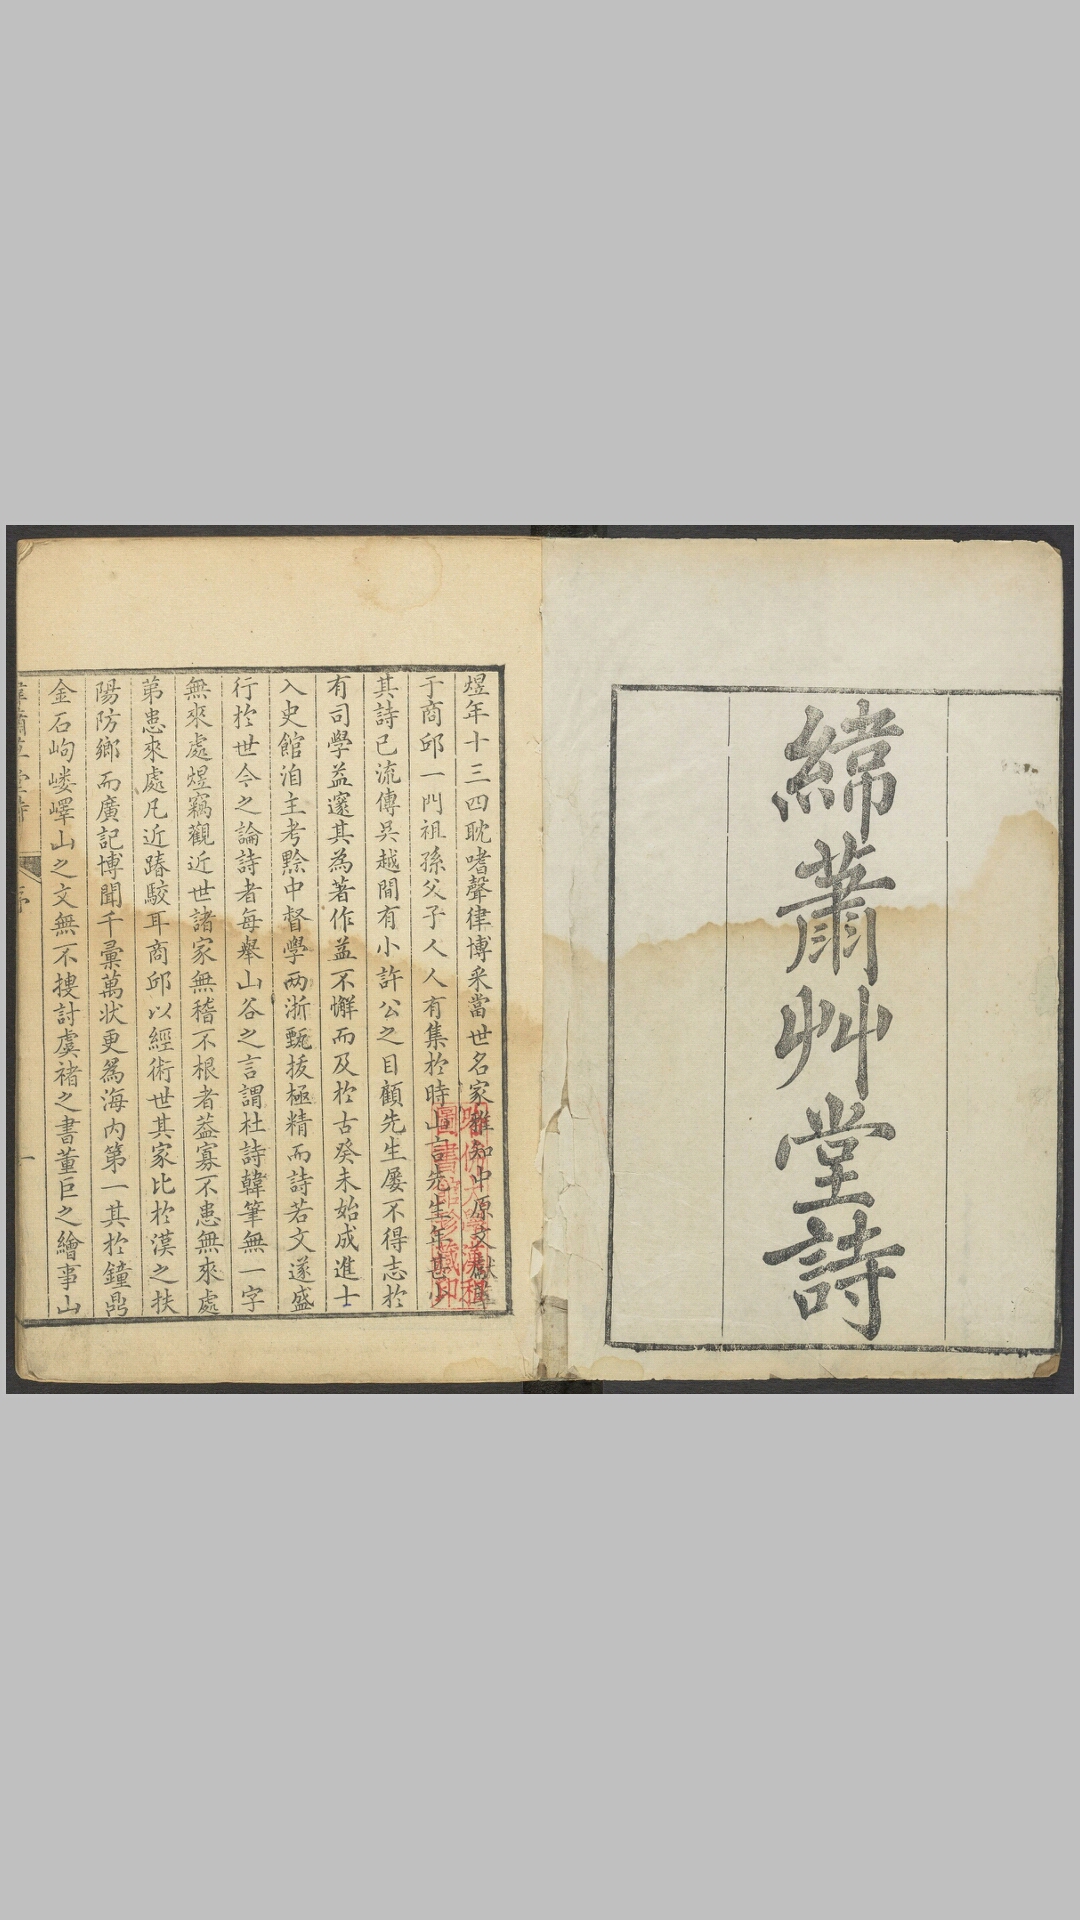 緯蕭艸堂詩
煜年十三四耽嗜聲律博采當世名家雅知中原文獻萃
于商邱一門祖孫父子人人有集於時山言先生年甚少
其詩已流傳吳越間有小許公之目顧先生屢不得志於
有司學益邃其為著作益不懈而及於古癸未始成進士
入史館洎主考黔中督學两浙甄拔極精而詩若文遂盛
行於世今之論詩者每舉山谷之言謂杜詩韓筆無一字
無來處煜竊觀近世諸家無稽不根者蓋寡不患無來處
第患來處凡近踳駮耳商邱以經術世其家比於漢之扶
陽防鄉而廣記博聞千彙萬状更為海内第一其於鐘鼎
金石岣嶁嶧山之文無不摟討虞褚之書董巨之繪事山
緯蕭草堂詩 序 一
哈佛大學漢和
圖書館珍藏印